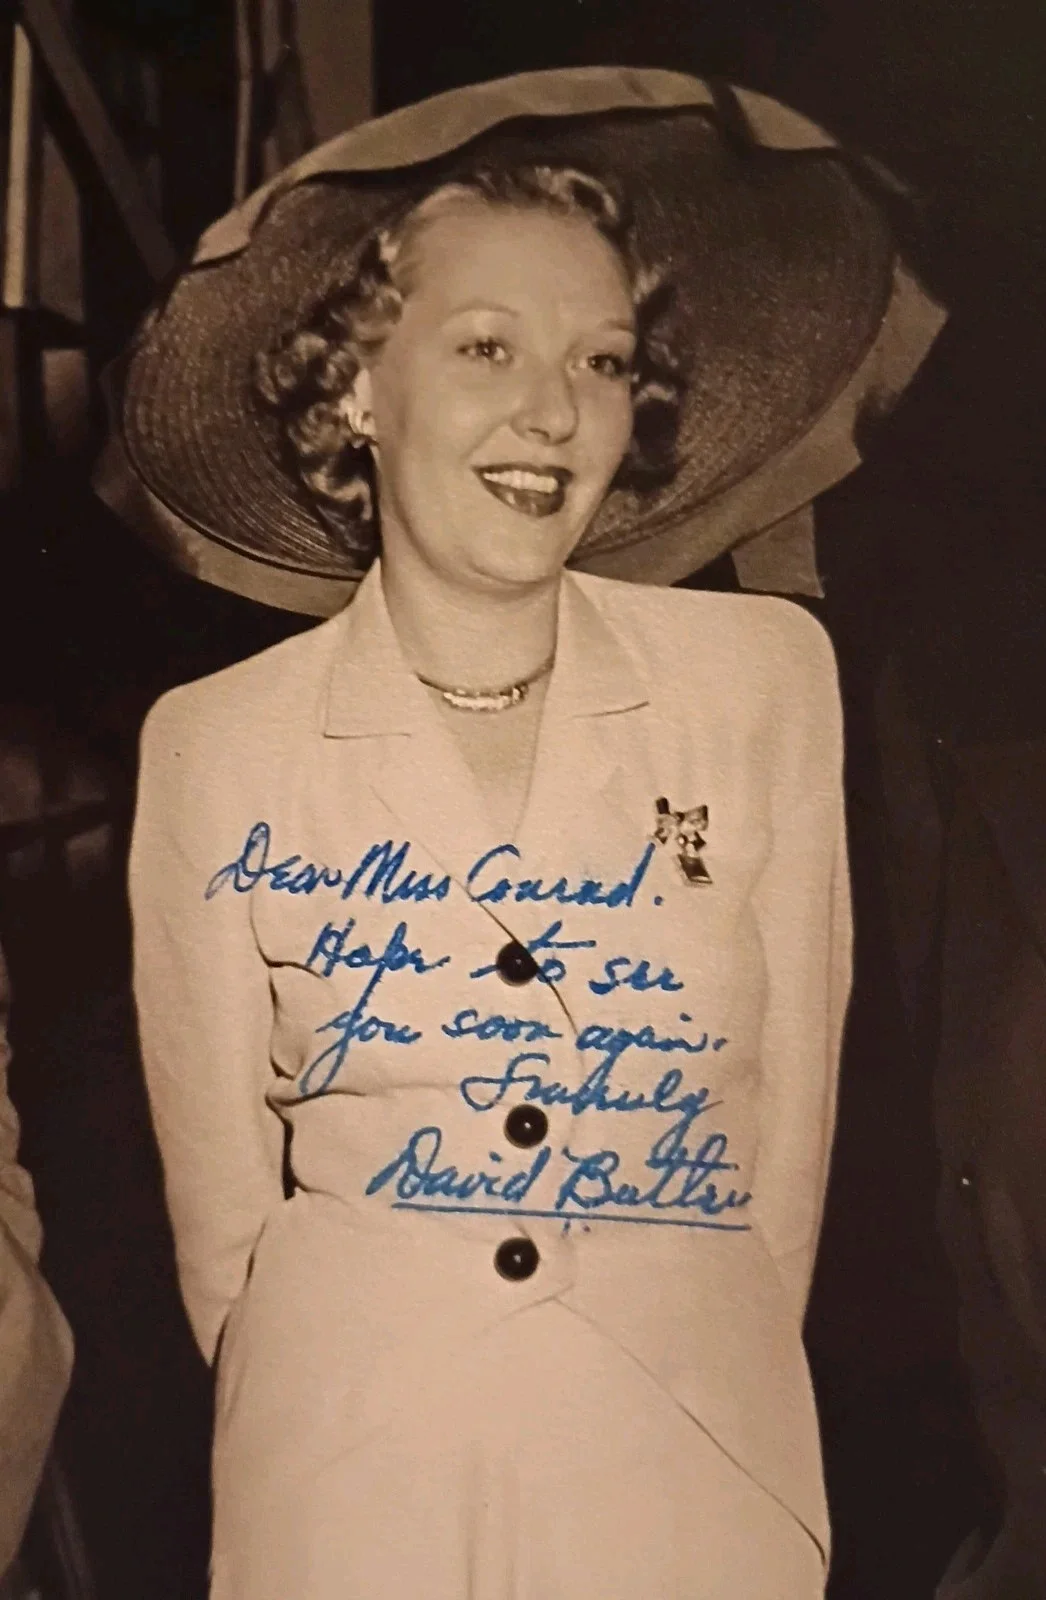 Dear Miss Conrad.
Hope to see
you soon again.
Sincerely
David Butler